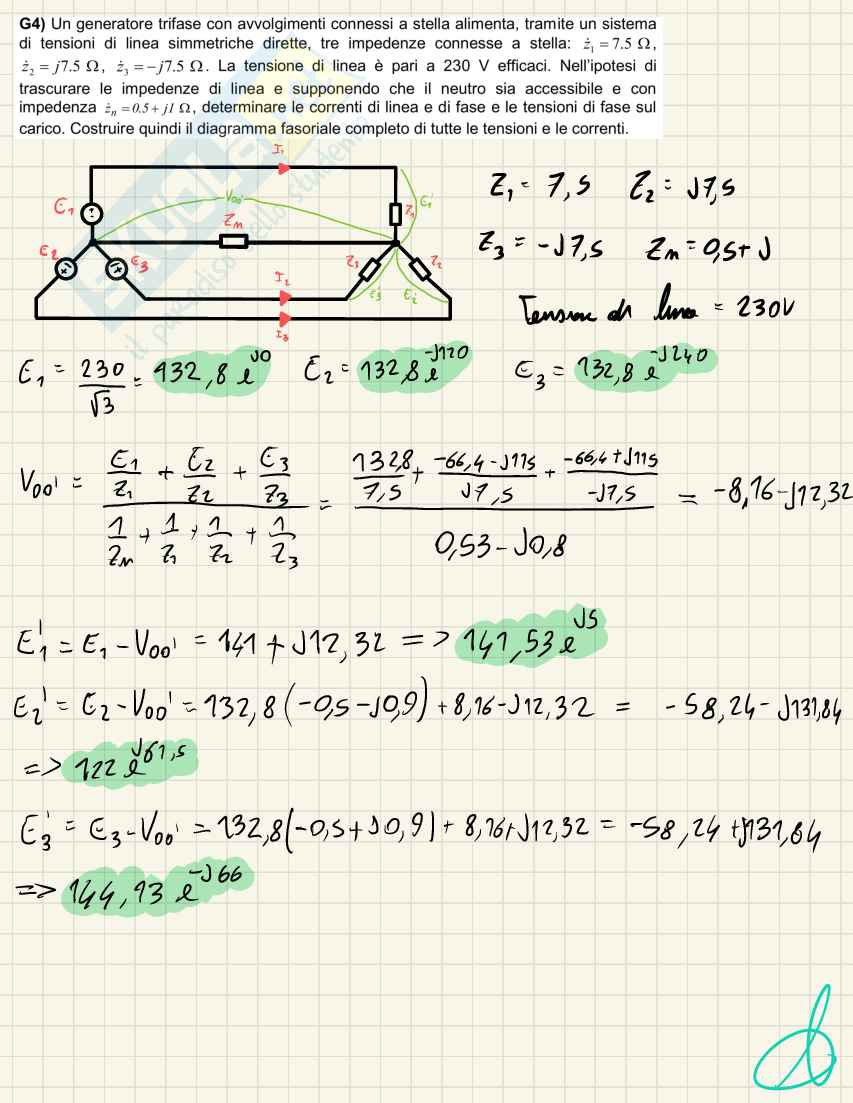 G4) Un generatore trifase con avvolgimenti connessi a stella alimenta, tramite un sistema
di tensioni di linea simmetriche dirette, tre impedenze connesse a stella: ż₁ = 7.5 Ω,
ż₂ = j7.5 Ω, ż₃ = −j7.5 Ω. La tensione di linea è pari a 230 V efficaci. Nell'ipotesi di
trascurare le impedenze di linea e supponendo che il neutro sia accessibile e con
impedenza żₙ = 0.5 + j1 Ω, determinare le correnti di linea e di fase e le tensioni di fase sul
carico. Costruire quindi il diagramma fasoriale completo di tutte le tensioni e le correnti.
il paradiso dello studente
I₁
V₀₀'
E₁
Zₙ
Z₁
E₁'
E₂
E₃
Z₃
Z₂
I₂
E₃'
E₂'
I₃
Z₁ = 7,5 Z₂ = J7,5
Z₃ = -J7,5 Zₙ = 0,5 + J
Tensione di linea = 230V
E₁ = 230/√3 = 132,8 e^J0 E₂ = 132,8 e^-J120 E₃ = 132,8 e^-J240
V₀₀' = (E₁/Z₁ + E₂/Z₂ + E₃/Z₃) / (1/Zₙ + 1/Z₁ + 1/Z₂ + 1/Z₃) = (132,8/7,5 + (-66,4-J115)/J7,5 + (-66,4+J115)/-J7,5) / (0,53-J0,8) = -8,16-J12,32
E₁' = E₁ - V₀₀' = 141 + J12,32 => 141,53 e^J5
E₂' = E₂ - V₀₀' = 132,8(-0,5-J0,9) + 8,16-J12,32 = -58,24-J131,84
=> 122 e^J61,5
E₃' = E₃-V₀₀' = 132,8(-0,5+J0,9) + 8,16+J12,32 = -58,24+J131,84
=> 144,13 e^-J66